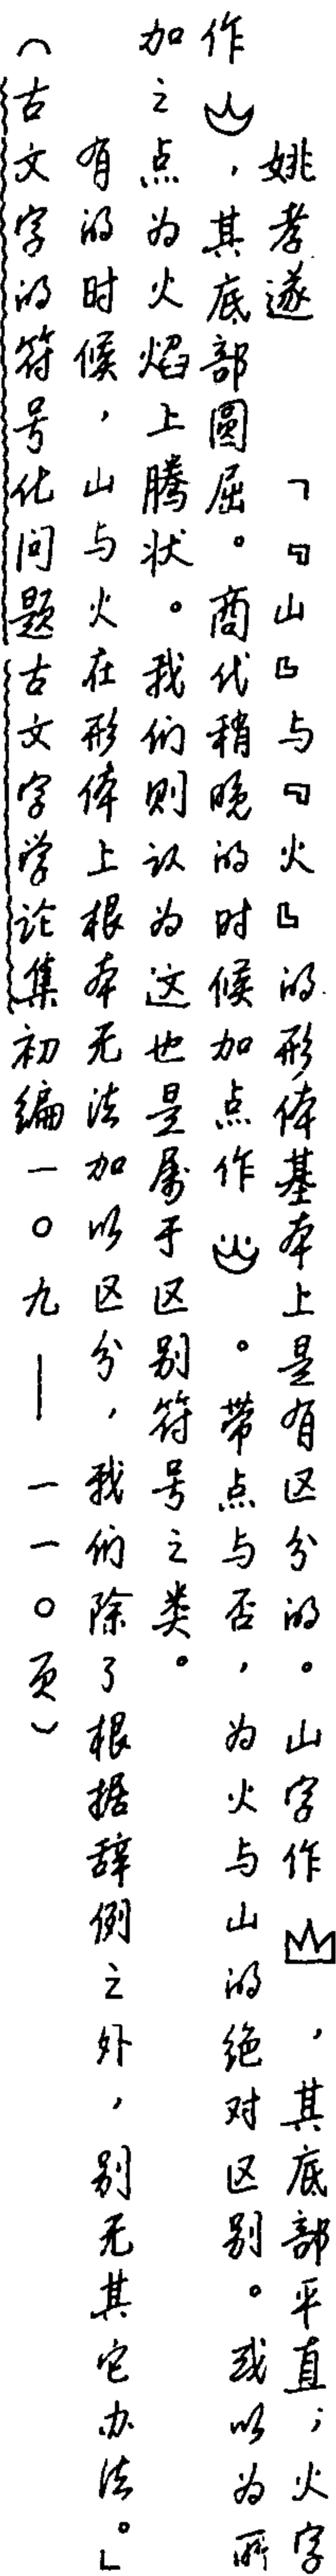 姚孝遂　「『山』与『火』的形体基本上是有区分的。山字作，其底部平直；火字
作，其底部圆屈。商代稍晚的时候加点作。带点与否，为火与山的绝对区别。或以为所
加之点为火焰上腾状。我们则认为这也是属于区别符号之类。
有的时候，山与火在形体上根本无法加以区分，我们除了根据辞例之外，别无其它办法。」
（古文字的符号化问题古文字学论集初编一〇九——一一〇页）